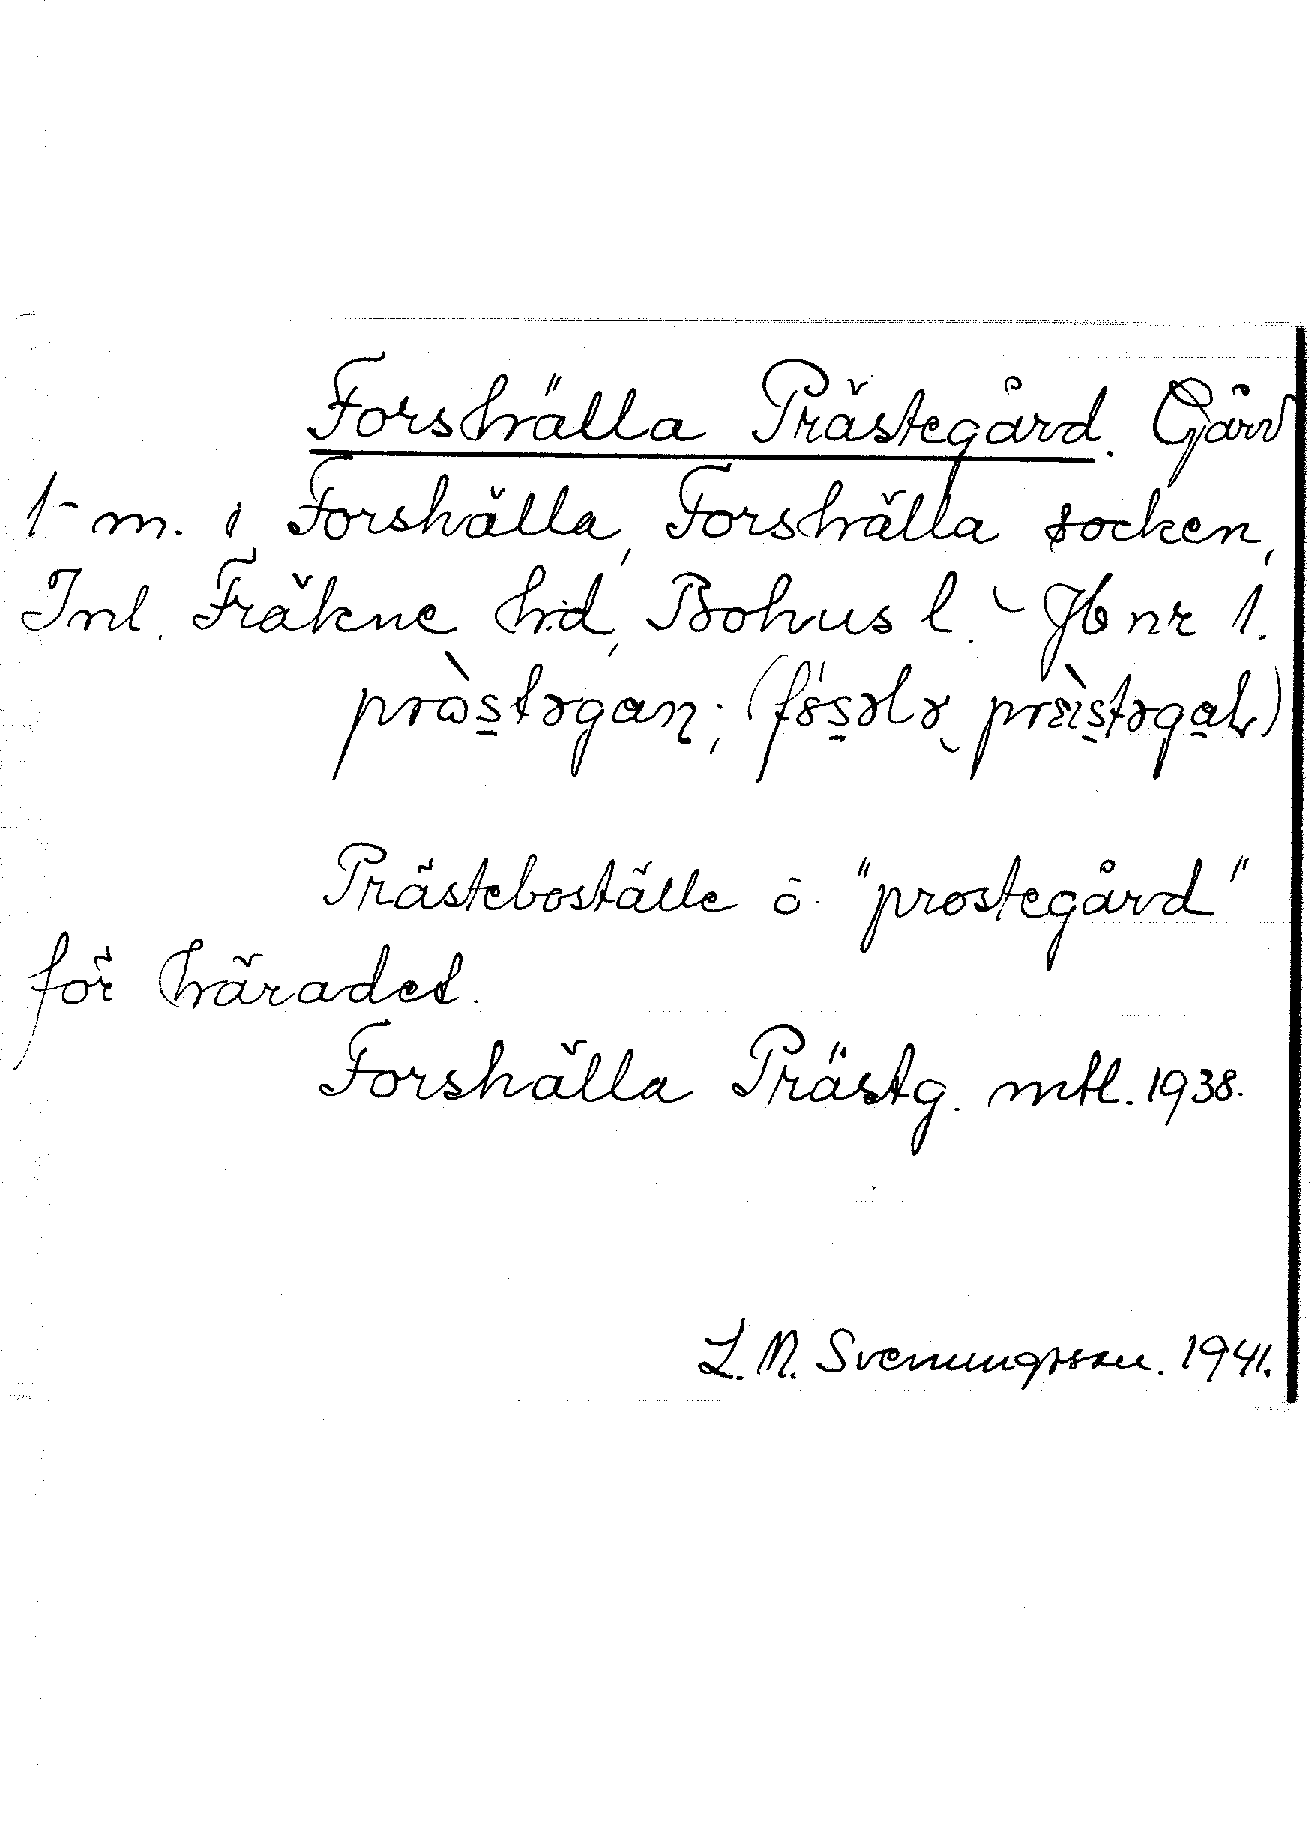 Forshälla Prästegård. Gård
1 m. i Forshälla, Forshälla socken,
Inl. Fräkne hd, Bohus l. - Jb nr 1.
Prästeboställe o. "prostegård"
för häradet.
Forshälla Prästg. mtl. 1938.
L. N. Svenungsson. 1941.